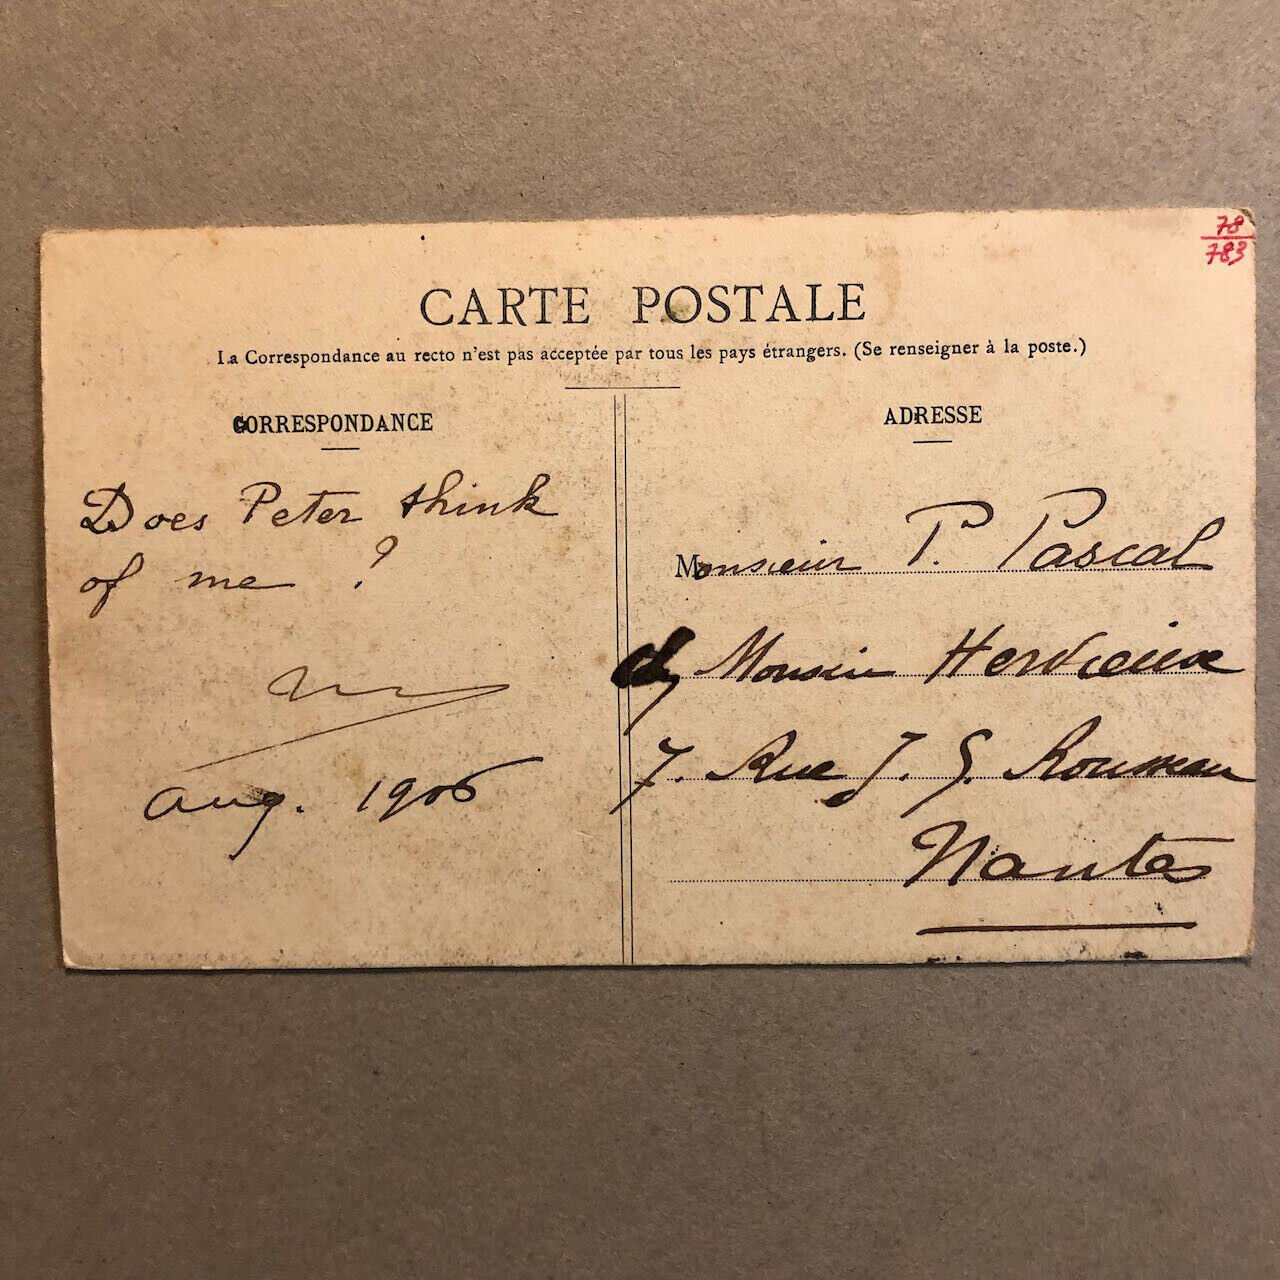 78
783
CARTE POSTALE
La Correspondance au recto n'est pas acceptée par tous les pays étrangers. (Se renseigner à la poste.)
CORRESPONDANCE
Does Peter think
of me ?
Aug. 1906
ADRESSE
Monsieur P. Pascal
Monsieur Hervieux
7. Rue J. J. Rousseau
Nantes